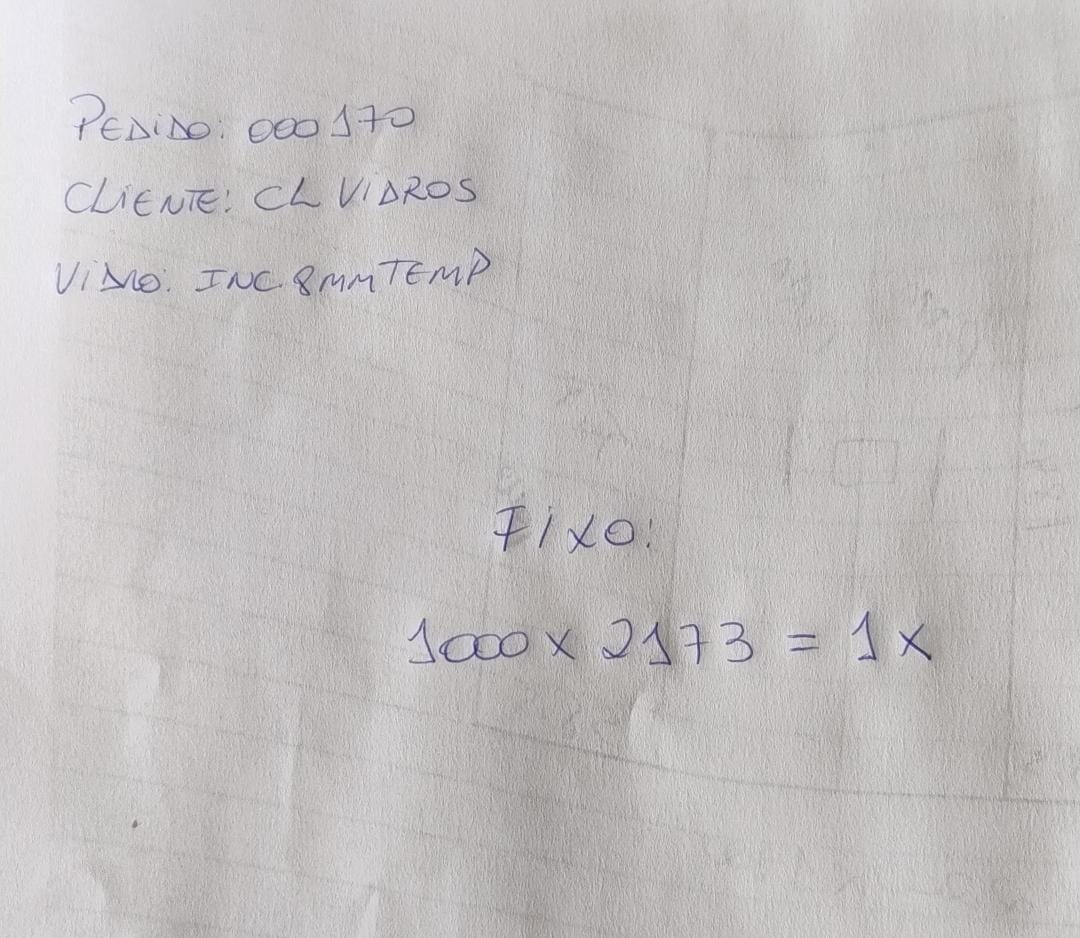 PEDIDO: 000170
CLIENTE: CL VIDROS
VIDRO: INC 8MM TEMP
FIXO:
1000 x 2173 = 1x